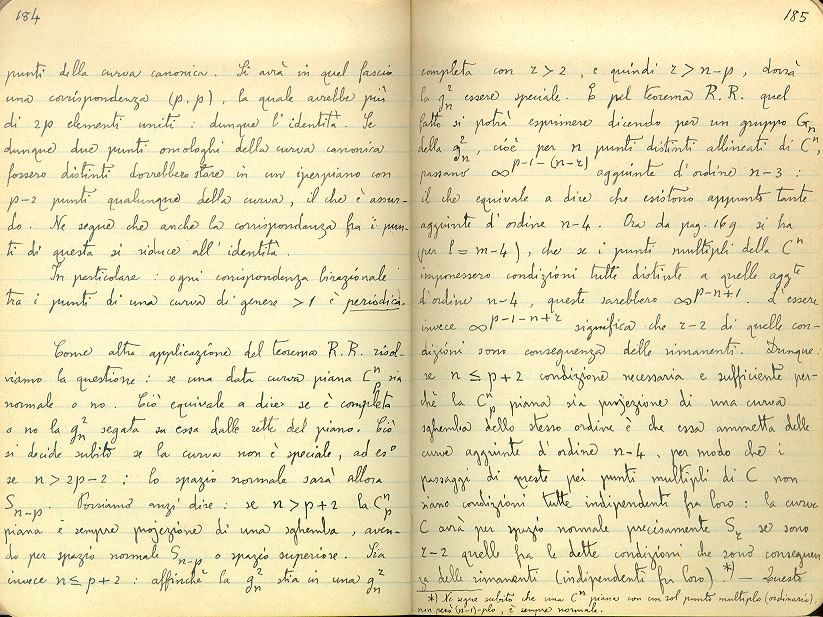 184
punti della curva canonica. Si avrà in quel fascio
una corrispondenza (p, p), la quale avrebbe più
di 2p elementi uniti: dunque l'identità. Se
dunque due punti omologhi della curva canonica
fossero distinti dovrebbero stare in un iperpiano con
p-2 punti qualunque della curva, il che è assur-
do. Ne segue che anche la corrispondenza fra i pun-
ti di questa si riduce all'identità.
In particolare: ogni corrispondenza birazionale
tra i punti di una curva di genere > 1 è periodica.
Come altra applicazione del teorema R.R. risol-
viamo la questione: se una data curva piana C^n_p sia
normale o no. Ciò equivale a dire se è completa
o no la g^2_n segata su essa dalle rette del piano. Ciò
si decide subito se la curva non è speciale, ad es°
se n > 2p-2: lo spazio normale sarà allora
S_{n-p}. Possiamo anzi dire: se n > p+2 la C^n_p
piana è sempre projezione di una sghemba, aven-
do per spazio normale S_{n-p} o spazio superiore. Sia
invece n ≤ p+2: affinchè la g^2_n stia in una g^r_n
185
completa con r > 2, e quindi r > n-p, dovrà
la g^2_n essere speciale. E pel teorema R.R. quel
fatto si potrà esprimere dicendo per un gruppo G_n
della g^2_n, cioè per n punti distinti allineati di C^n,
passano ∞^{p-1-(n-r)} aggiunte d'ordine n-3:
il che equivale a dire che esistono appunto tante
aggiunte d'ordine n-4. Ora da pag. 169 si ha
(per l = m-4), che se i punti multipli della C^n
imponessero condizioni tutte distinte a quelle agg^te
d'ordine n-4, queste sarebbero ∞^{p-n+1}. L'essere
invece ∞^{p-1-n+r} significa che r-2 di quelle con-
dizioni sono conseguenza delle rimanenti. Dunque:
se n ≤ p+2 condizione necessaria e sufficiente per-
chè la C^n_p piana sia projezione di una curva
sghemba dello stesso ordine è che essa ammetta delle
curve aggiunte d'ordine n-4, per modo che i
passaggi di queste pei punti multipli di C non
siano condizioni tutte indipendenti fra loro: la curva
C avrà per spazio normale precisamente S_r se sono
r-2 quelle fra le dette condizioni che sono conseguen
za delle rimanenti (indipendenti fra loro).*) — Questo
*) Ne segue subito che una C^n piana con un sol punto multiplo (ordinario),
non però (n-1)-plo, è sempre normale.